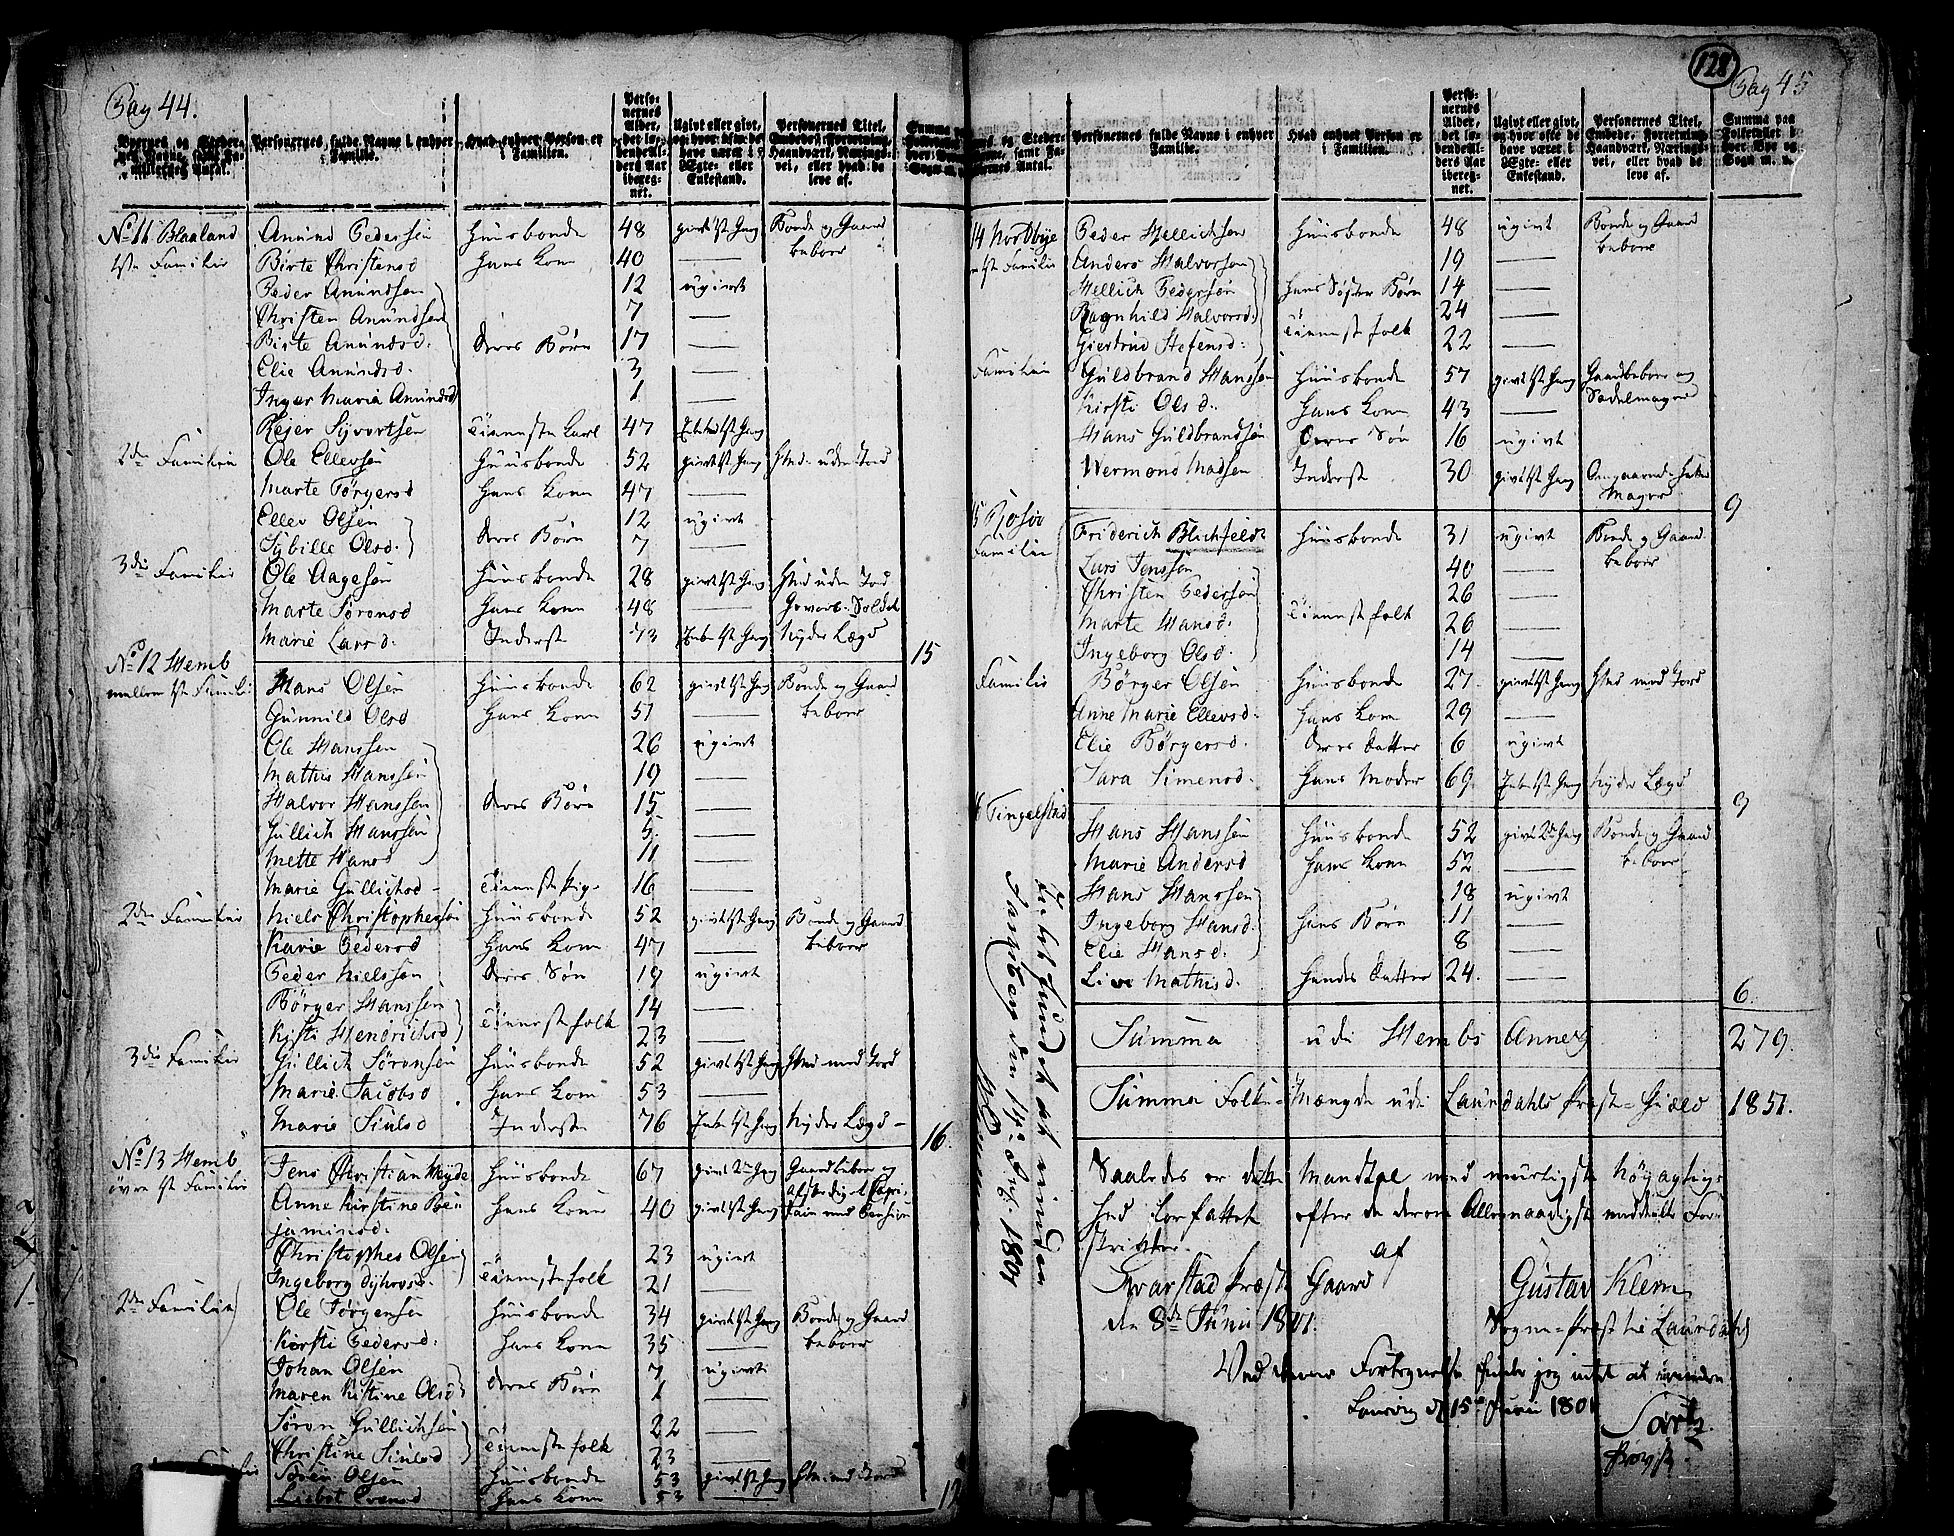 Pag 44.
Byernes og Stedernes Navne, samt Familiernes Antal.
Personernes fulde Navne i enhver Familie.
Hvad enhver Person er i Familien.
Personernes Alder, det løbende Alders Aar iberegnet.
Ugivt eller givt, og hvor ofte de have været i Ægte- eller Enkestand.
Personernes Titel, Embede, Forretning, Haandværk, Næringsvei, eller hvad de leve af.
No 11 Blaaland Amund Pedersen Huusbonde 48 givt 1st Gang Bonde og Gaard
1ste Familie Birte Christensd Hans Kone 40 — beboer
Peder Amundsen 12 ugivt
Christen Amundsen 7 —
Birte Amundsd. deres Børn 17 —
Elie Amundsd. 3 —
Inger Maria Amundsd 1 —
Rejer Syvertsen Tienneste Karl 47 Enke 1st Gang
2den Familie Ole Ellevsen Huusbonde 52 givt 1st Gang Hmd. uden Jord
Marte Børgersd Hans Kone 47 —
Ellev Olsen 12 ugivt
Sybille Olsd. deres Børn 7 —
3die Familie Ole Aagesen Huusbonde 28 givt 1st Gang Hmd uden Jord
Marte Sørensd Hans Kone 48 — Gevorb. Soldat
Marie Larsd. Inderste 73 Enke 1st Gang Nyder Lægd
15
No 12 Hemb
mellem 1st Familie Hans Olsen Huusbonde 62 givt 1st Gang Bonde og Gaard
Gunnild Olsd Hans Kone 51 — beboer
Ole Hanssen 26 ugivt
Mathis Hanssen 19 —
Halvor Hanssen deres Børn 15 —
Gullich Hanssen 5 —
Mette Hansd 11 —
Marie Gullichsd Tienneste Pige 16 —
2den Familie Niels Christophersen Huusbonde 52 givt 1st Gang Bonde og Gaard
Karie Pedersd Hans Kone 47 — beboer
Peder Nielssen deres Søn 19 ugivt
Børger Hanssen 14 —
Kisti Hendrichsd Tienneste folk 23 —
3die Familie Gullich Sørensen Huusbonde 52 givt 1st Gang Hmd med Jord
Marie Jacobsd Hans Kone 53 —
Marie Siulsd Inderste 76 Enke 1st Gang Nyder Lægd
16.
No 13 Hemb Jens Christian Mejde Huusbonde 67 givt 2den Gang Gaardbeboer og
øvre 1st Familie Anne Kirstine Benjaminsd. Hans Kone 40 givt 1st Gang afskediget Capitain med Pension
Christopher Olsen 23 ugivt
Ingeborg Sjhovsd. Tienneste folk 21 —
2den Familie Ole Jørgensen Huusbonde 34 givt 1st Gang Bonde og Gaard
Kirsti Pedersd. Hans Kone 35 — beboer
Johan Olsen 7 ugivt
Maren Kistine Olsd deres Børn 1 —
Søren Gullichsen 22 —
Christine Siulsd Tienneste folk 23 —
Familie Søren Olsen Huusbonde 53 givt 1st Gang Hm. med Jord
Lisbet Evensd Hans Kone 53 —
12
128
Pag 45
Personernes fulde Navne i enhver Familie.
Hvad enhver Person er i Familien.
Personernes Alder, det løbende Alders Aar iberegnet.
Ugivt eller givt, og hvor ofte de have været i Ægte- eller Enkestand.
Personernes Titel, Embede, Forretning, Haandværk, Næringsvei, eller hvad de leve af.
Summa paa Folketallet i hver Bye og Sogn m. v.
14 Nordbye Peder Hellichsen Huusbonde 48 ugivt Bonde og Gaard
1st Familie Anders Halvorsen 19 — beboer
Hellich Pedersen Hans Søster Børn 14 —
Ragnhild Halvorsd. 24 —
Giertrud Stefensd. Tienneste folk 22 —
Familie Guldbrand Hanssen Huusbonde 57 givt 1st Gang Gaardbeboer og
Kirsti Olsd. Hans Kone 43 — Sadelmager
Hans Guldbrandsen deres Søn 16 ugivt
Wermond Madsen Inderst 30 givt 1st Gang
Mager
9
15 Røsø Friderich Blichfeldt Huusbonde 31 ugivt Bonde og Gaard
Familie Lars Jenssen 40 — beboer
Christen Pedersen 26 —
Marte Hansd. Tienneste folk 26 —
Ingeborg Olsd. 14 —
Familie Børger Olsen Huusbonde 27 givt 1st Gang Hmd med Jord
Anne Marie Ellevsd. Hans Kone 29 —
Elie Børgersd. deres Datter 6 ugivt
Sara Simensd. Hans Moder 69 Enke 1st Gang Nyder Lægd
9
16 Tingelstad Hans Hanssen Huusbonde 52 givt 2den Gang Bonde og Gaard
Marie Andersd Hans Kone 52 — beboer
Hans Hanssen 18 ugivt
Ingeborg Hansd. Hans Børn 11 —
Elie Hansd. 8 —
Live Mathisd. Hendes Datter 24 —
6.
Summa udi Hembs Annex 279.
Summa Folke-Mængde udi Laurdahls Præste-Gield 1851.
Saaledes er dette Mandtal med muligste høyagtig-
hed forfattet efter de derom Allernaadigst meddeelte For-
skrivter.
af
Qvarstad Præste Gaard Gustav Klem
den 8de Junii 1801. Sogne-Præst til Laurdahl
Ved denne Fortegnelse finder jeg intet at erindre
Laurvig d 15de Junii 1801
Sartz
Provst.
Intet fundet at erindre
Jarlsberg den 14de Aug. 1801